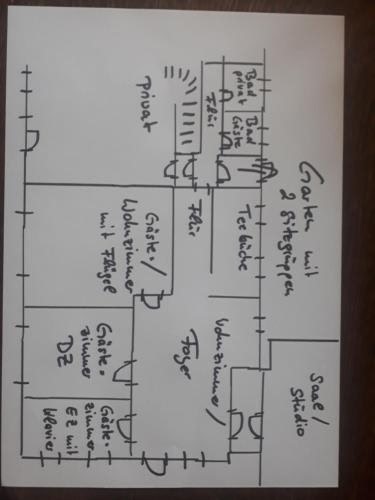 Garten mit
2 Sitzgruppen
Saal/
Studio
Bad
privat
Bad
Gäste
Flür
Teeküche
Wohnzimmer/
Foyer
Privat
Flür
Gäste-/
Wohnzimmer
mit Flügel
Gäste-
zimmer
DZ
Gäste-
zimmer
EZ mit
Klavier